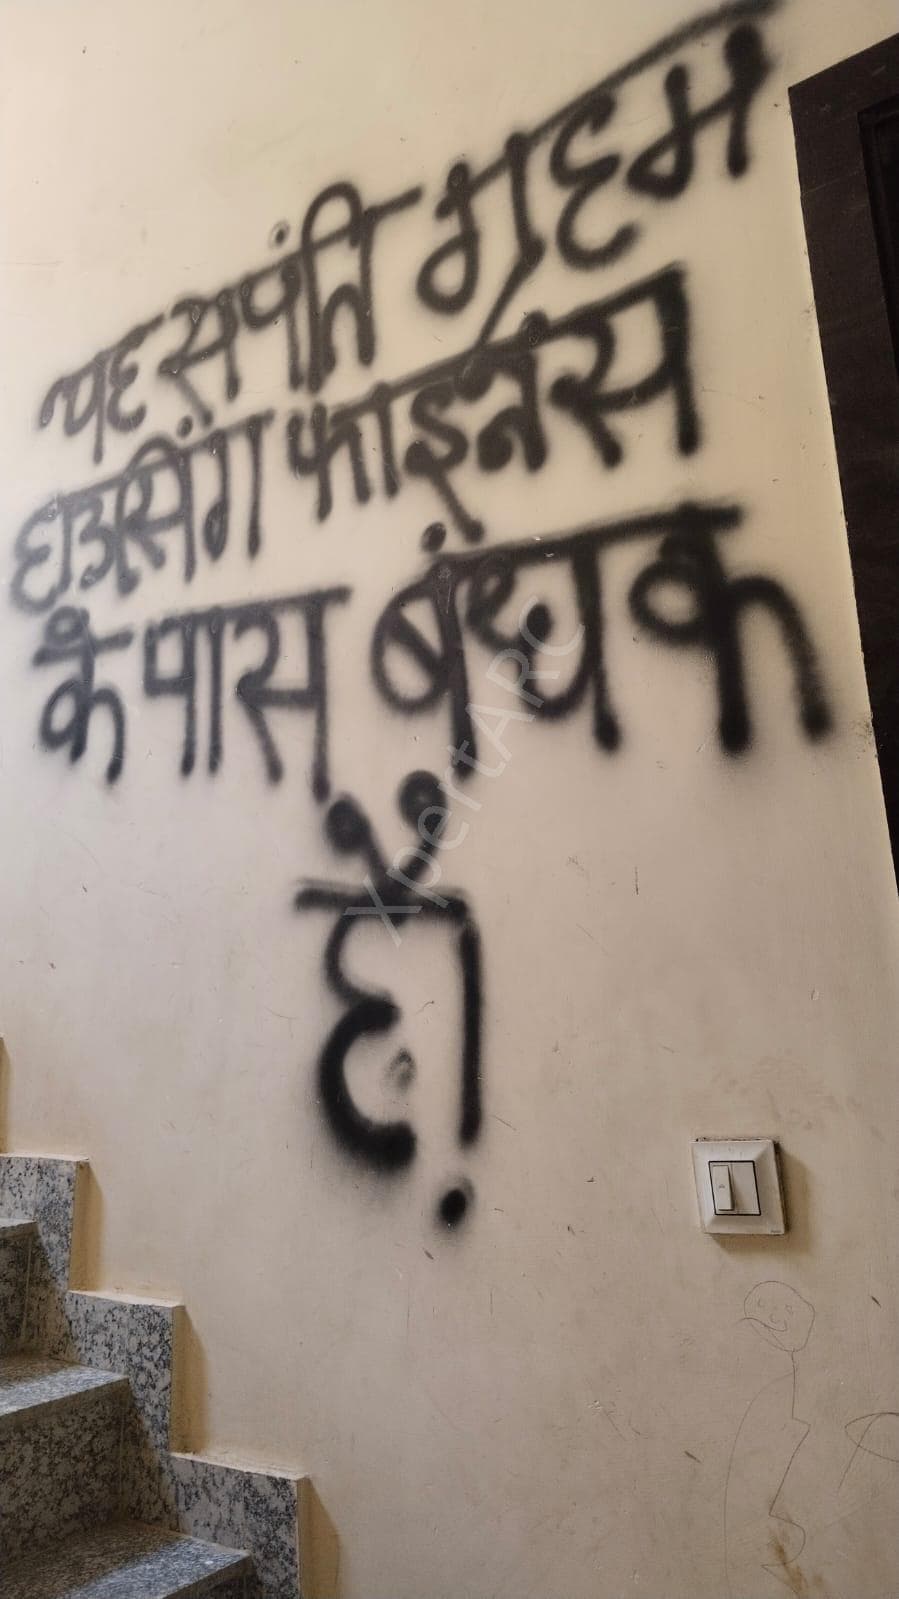 यह सपंति ग्रहम
हाउसिंग फाइनेंस
के पास बंधक
हैं.
XpertARC